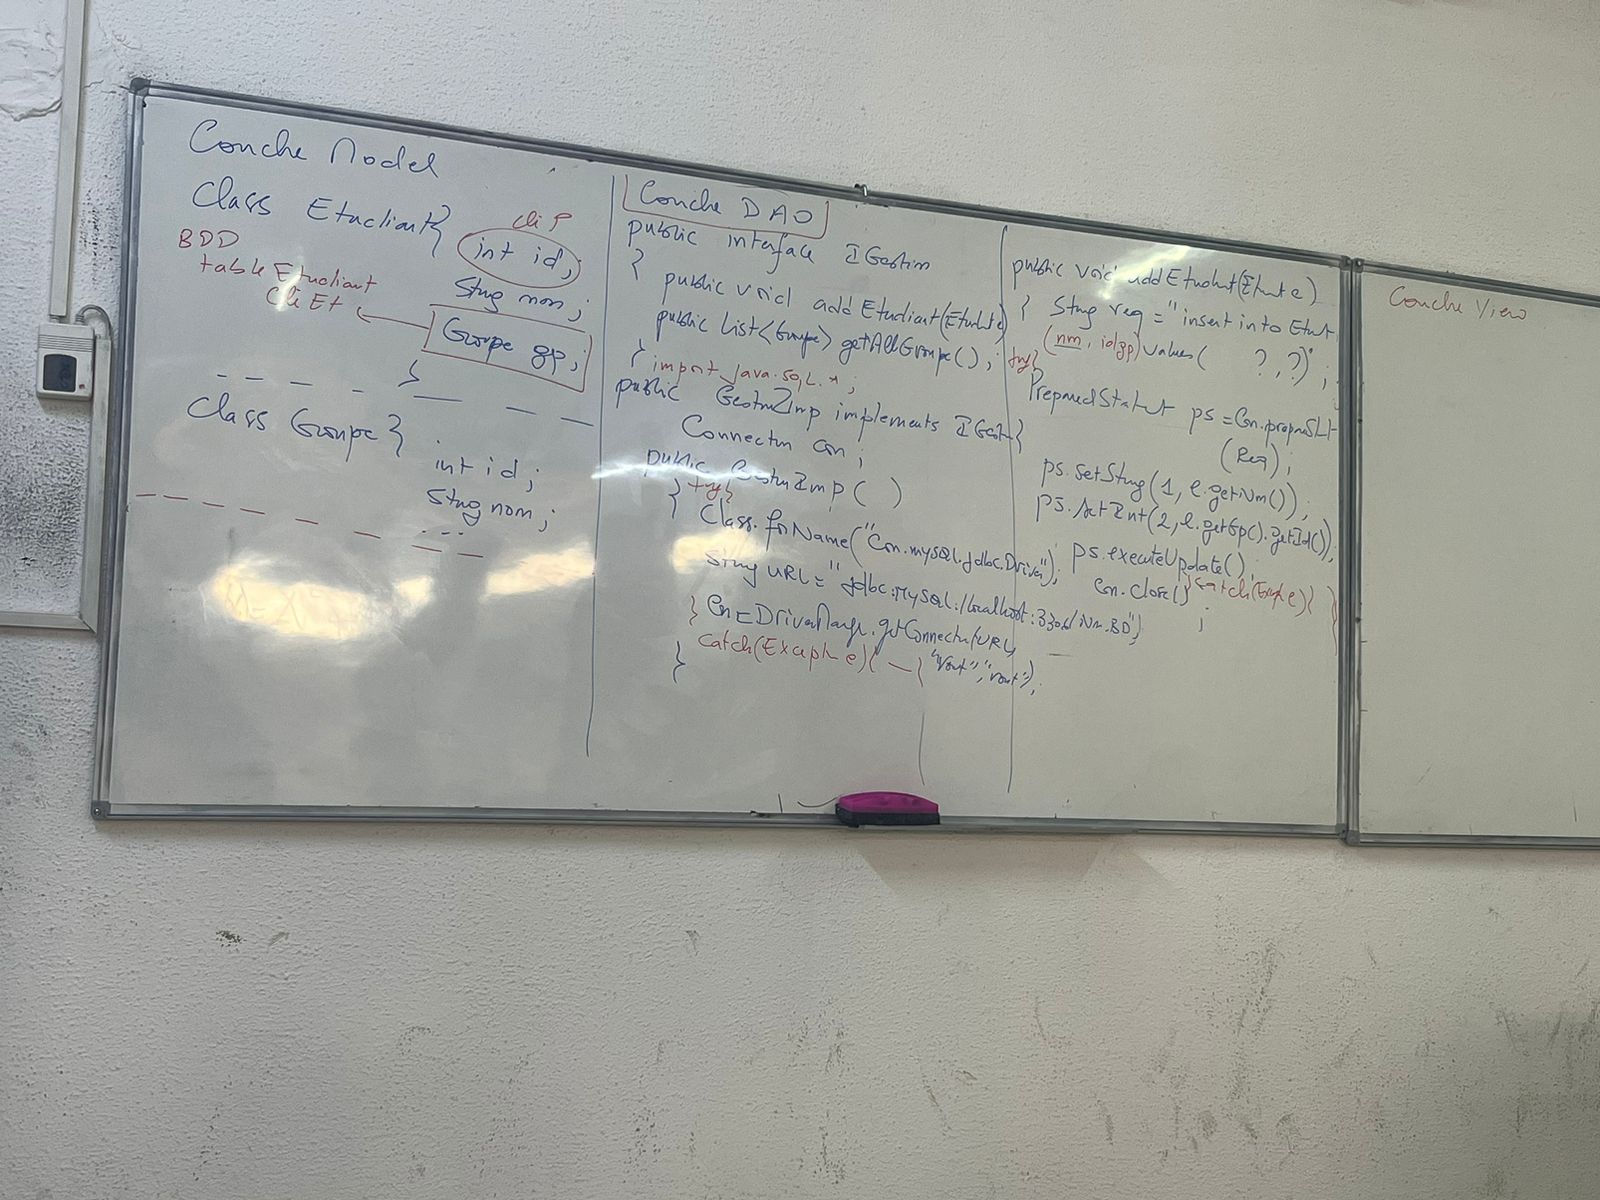 Couche Model
Class Etudiant{
clé P
int id;
BDD
table Etudiant
Clé Et
String nom;
Groupe gp;
}
Class Groupe {
int id;
String nom;
...
Couche DAO
public interface IGestion
{
public void addEtudiant(Etud e)
public List<Groupe> getAllGroupe();
} import java.sql.*;
public GestionImp implements IGest{
Connection con;
public GestionImp( )
{ try{
Class.forName("Com.mysql.jdbc.Driver");
String URL="jdbc:MySQL:/localhost:3306/Nm.BD";
} Con=DriverManager.getConnection(URL,
"root","root");
catch(Exception e){ — }
}
public void addEtudiant(Etudiant e)
{ String req="insert into Etud
try{ (nm, idgp) values( ?,?)";
PreparedStatement ps=Con.prepareStat
(Req);
ps.setString(1, e.getNm());
ps.setInt(2,e.getGp().getId());
ps.executeUpdate();
Con.close() }catch(Except e){ }
;
Couche View